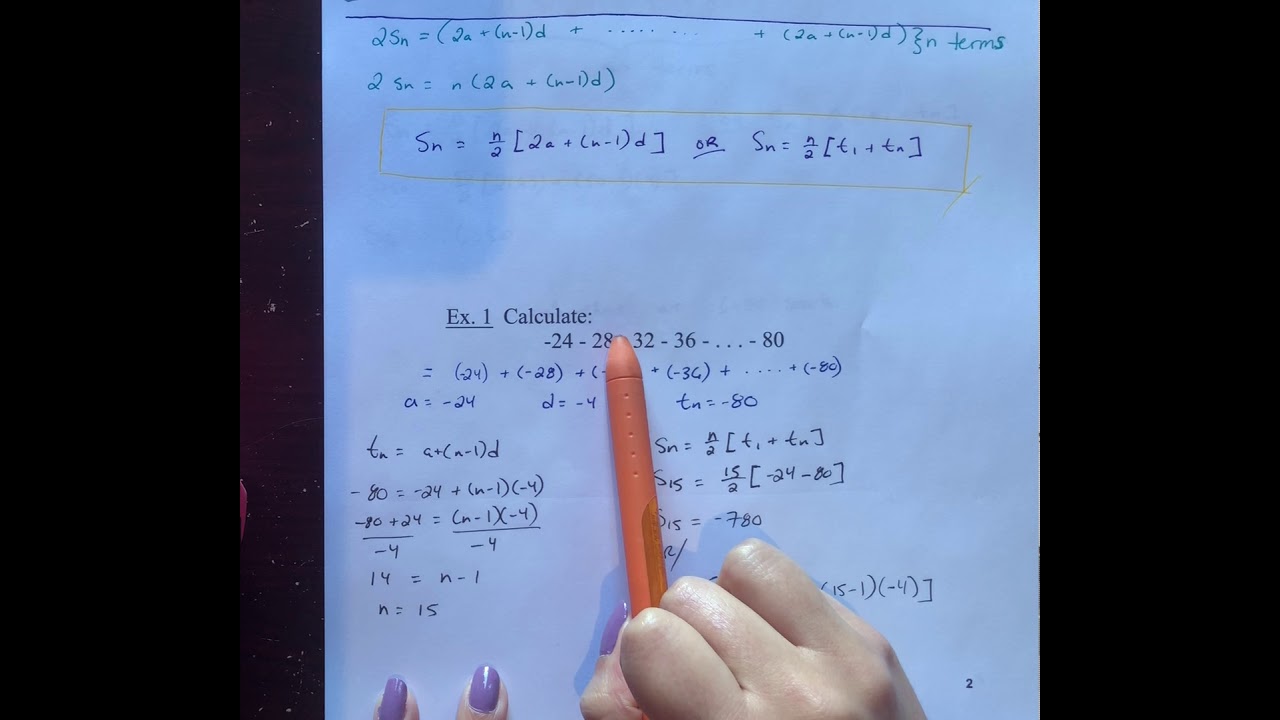 2Sn = (2a + (n-1)d + ..... ... + (2a + (n-1)d) } n terms
2 Sn = n (2a + (n-1)d)
Sn = n/2 [2a + (n-1)d] OR Sn = n/2 [t₁ + tn]
Ex. 1 Calculate:
-24 - 28 32 - 36 - . . . - 80
= (-24) + (-28) + (- + (-36) + .... + (-80)
a = -24 d = -4 tn = -80
tn = a+(n-1)d
-80 = -24 + (n-1)(-4)
-80 + 24 = (n-1)(-4)
-4 -4
14 = n - 1
n = 15
Sn = n/2 [t₁ + tn]
S15 = 15/2 [-24 - 80]
S15 = -780
(15-1)(-4)]
2